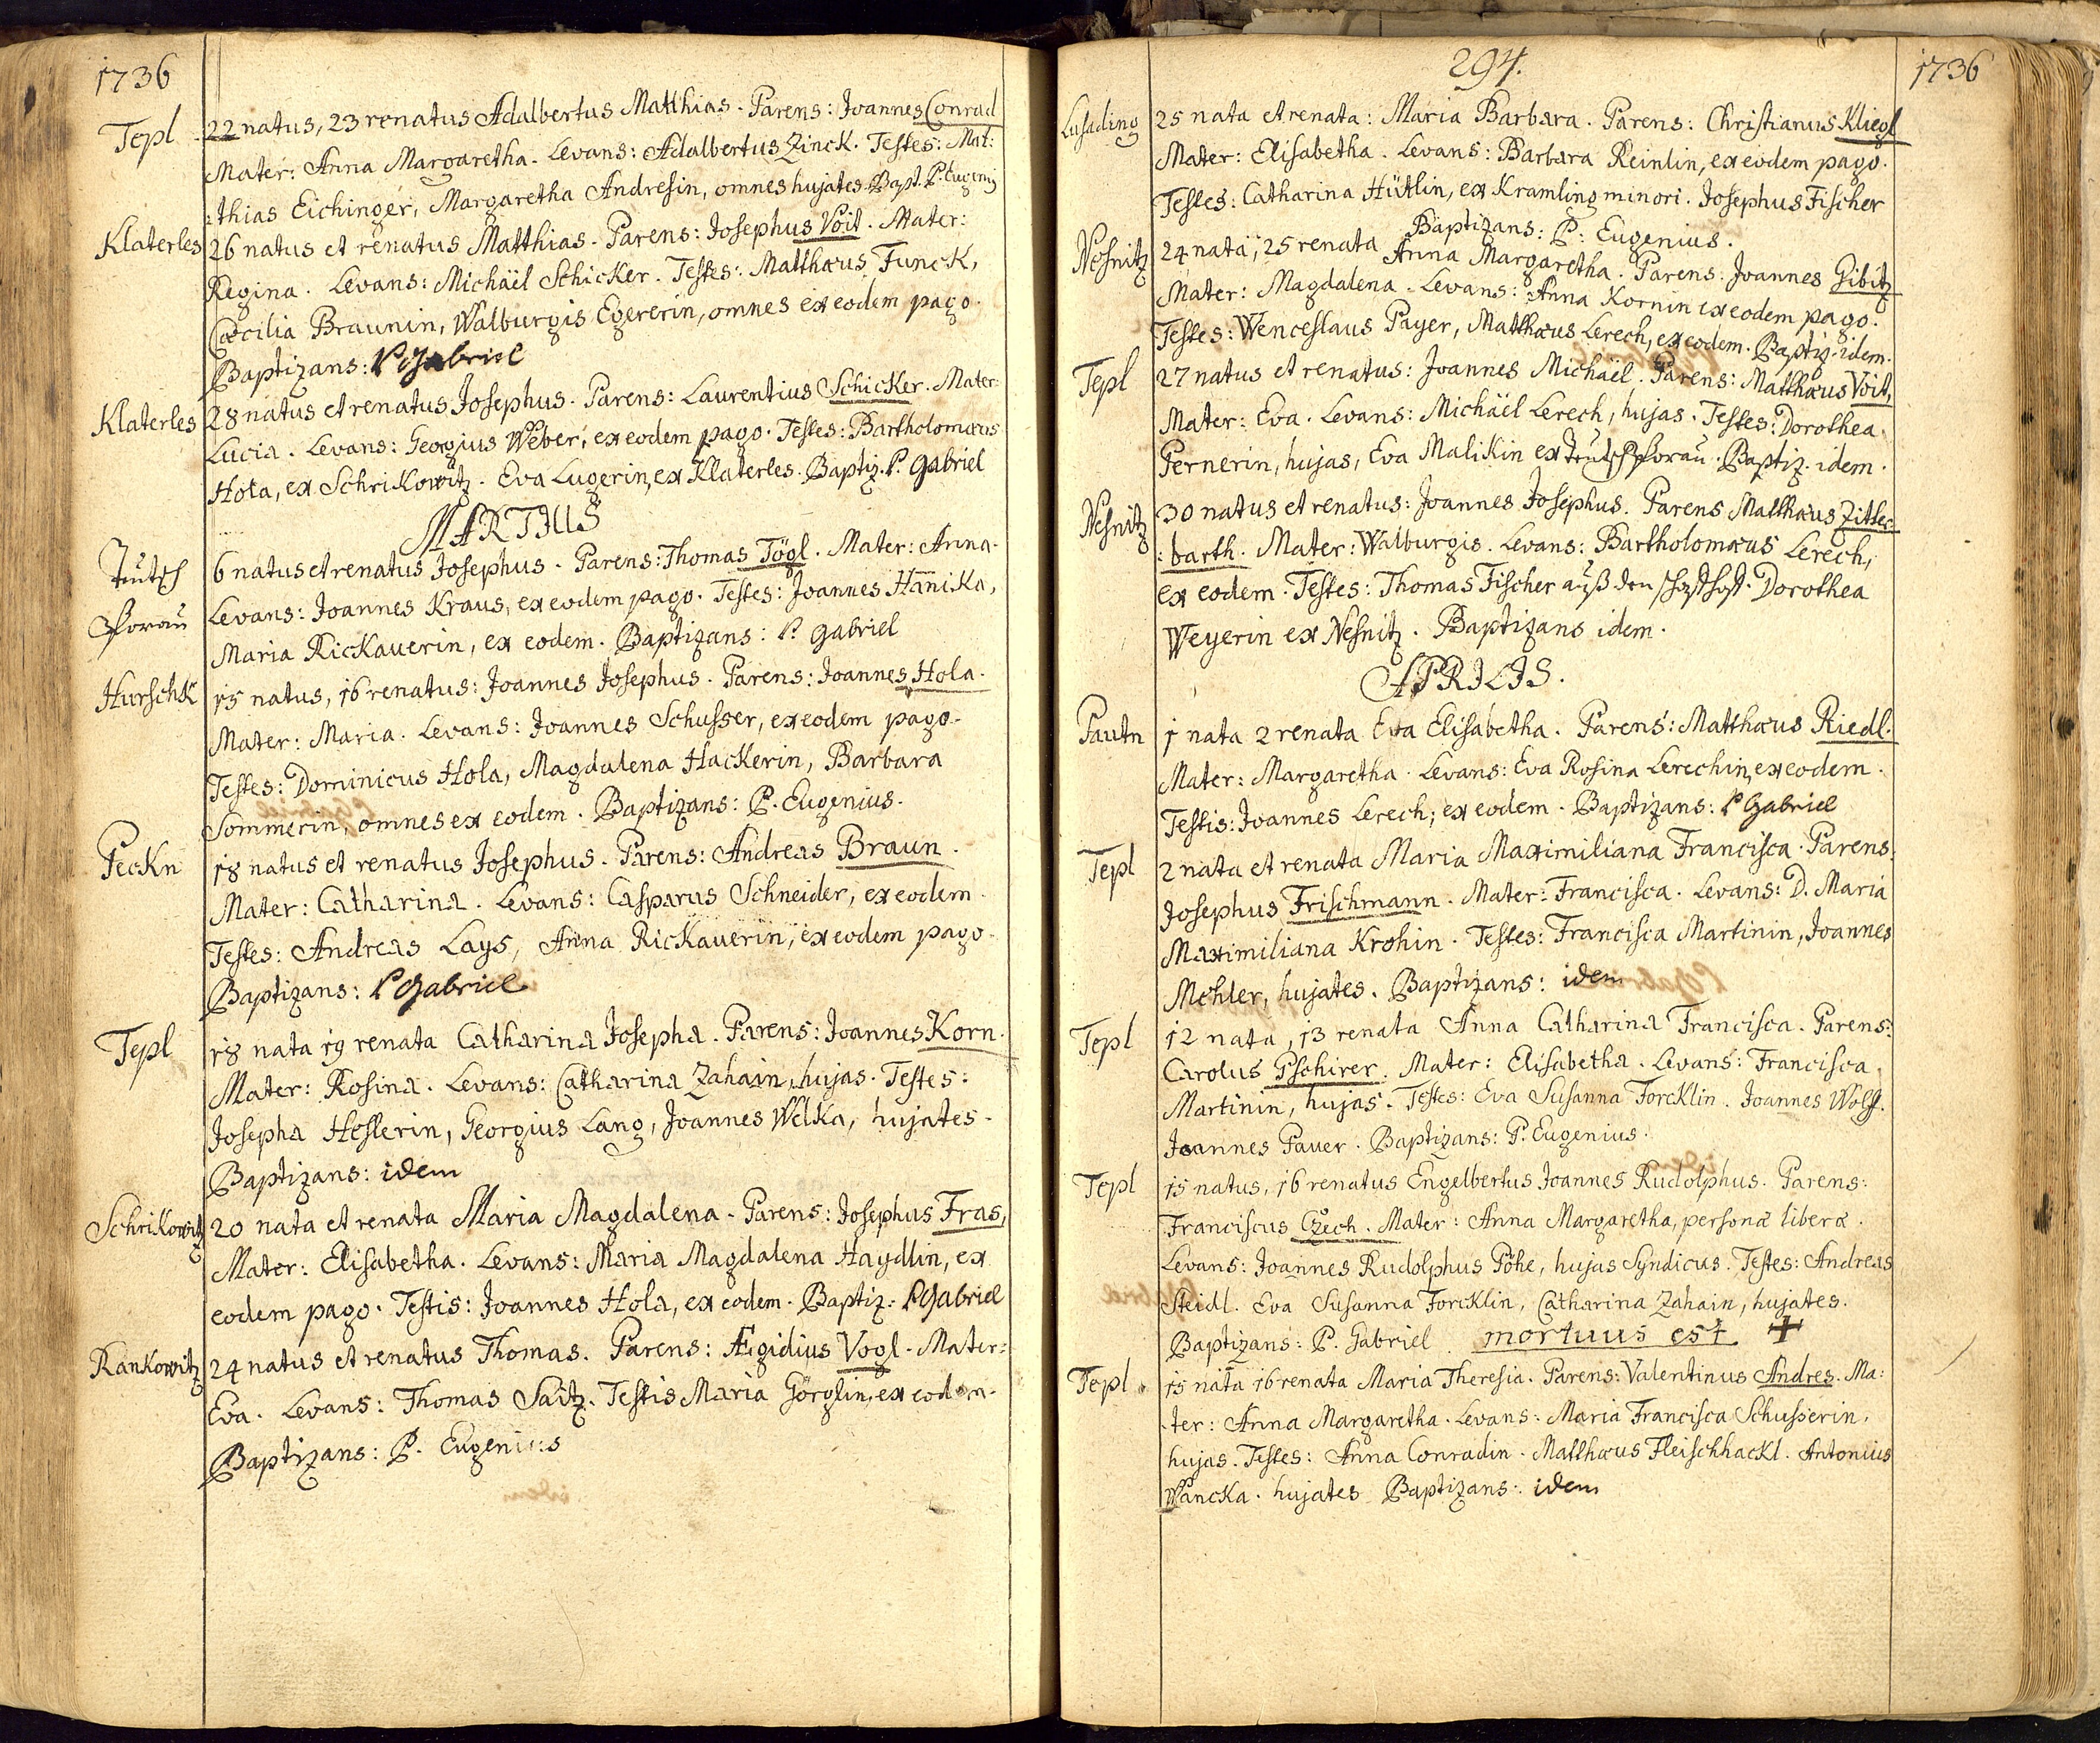 1736
Tepl
22 natus, 23 renatus Adalbertus Matthias. Parens: Joannes Conrad
Mater: Anna Margaretha. Levans: Adalbertus Zinck. Testes: Mat:
:thias Eichinger, Margaretha Andresin, omnes hujates. Bapt. P. Eugenij
Klaterles
26 natus et renatus Matthias. Parens: Josephus Voit. Mater:
Regina. Levans: Michäel Schicker. Testes: Matthæus Funck,
Cæcilia Braunin, Walburgis Egererin, omnes ex eodem pago.
Baptizans: P Gabriel
Klaterles
28 natus et renatus Josephus. Parens: Laurentius Schicker. Mater:
Lucia. Levans: Georgius Weber, ex eodem pago. Testes: Bartholomæus
Hola, ex Schrikowitz. Eva Lugerin, ex Klaterles. Baptiz. P. Gabriel
MARTIUS
Teutsch
Thorau
6 natus et renatus Josephus. Parens: Thomas Tögl. Mater: Anna.
Levans: Joannes Kraus, ex eodem pago. Testes: Joannes Hanika,
Maria Rickauerin, ex eodem. Baptizans: P. Gabriel
Hurschk
15 natus, 16 renatus: Joannes Josephus. Parens: Joannes Hola.
Mater: Maria. Levans: Joannes Schusser, ex eodem pago.
Testes: Dominicus Hola, Magdalena Hackerin, Barbara
Sommerin, omnes ex eodem. Baptizans: P. Eugenius.
Peckn
18 natus et renatus Josephus. Parens: Andreas Braun.
Mater: Catharina. Levans: Casparus Schneider, ex eodem.
Testes: Andreas Lays, Anna Rickauerin, ex eodem pago.
Baptizans: P Gabriel
Tepl
18 nata 19 renata Catharina Josepha. Parens: Joannes Korn.
Mater: Rosina. Levans: Catharina Zahain, hujas. Testes:
Josepha Heslerin, Georgius Lang, Joannes Welka, hujates.
Baptizans: idem
Schrikowitz
20 nata et renata Maria Magdalena. Parens: Josephus Fras,
Mater: Elisabetha. Levans: Maria Magdalena Haydlin, ex
eodem pago. Testis: Joannes Hola, ex eodem. Baptiz: P Gabriel
Rankowitz
24 natus et renatus Thomas. Parens: Ægidius Vogl. Mater:
Eva. Levans: Thomas Saitz. Testis Maria Görglin, ex eodem.
Baptizans: P. Eugenius
294.
1736
Lusading
25 nata et renata: Maria Barbara. Parens: Christianus Kliegl
Mater: Elisabetha. Levans: Barbara Reinlin, ex eodem pago.
Testes: Catharina Hütlin, ex Kramling minori. Josephus Fischer
Baptizans: P: Eugenius.
Nesnitz
24 nata, 25 renata Anna Margaretha. Parens: Joannes Gibitz
Mater: Magdalena. Levans: Anna Kornin ex eodem pago.
Testes: Wenceslaus Payer, Matthæus Lerech, ex eodem. Baptiz. idem.
Tepl
27 natus et renatus: Joannes Michäel. Parens: Matthæus Voit,
Mater: Eva. Levans: Michäel Lerech, hujas. Testes: Dorothea
Pernerin, hujas, Eva Malikin ex Teutschthorau. Baptiz. idem.
Nesnitz
30 natus et renatus: Joannes Josephus. Parens Matthæus Zitter=
:barth. Mater: Walburgis. Levans: Bartholomæus Lerech,
ex eodem. Testes: Thomas Fischer auß den. Dorothea
Weyerin ex Nesnitz. Baptizans idem.
APRILIS.
Pautn
1 nata 2 renata Eva Elisabetha. Parens: Matthæus Riedl.
Mater: Margaretha. Levans: Eva Rosina Lerechin, ex eodem.
Testis: Joannes Lerech; ex eodem. Baptizans: P Gabriel
Tepl
2 nata et renata Maria Maximiliana Francisca. Parens:
Josephus Frischmann. Mater: Francisca. Levans: D. Maria
Maximiliana Krohin. Testes: Francisca Martinin, Joannes
Mehler, hujates. Baptizans: idem
Tepl
12 nata, 13 renata Anna Catharina Francisca. Parens:
Carolus Pschirer. Mater: Elisabetha. Levans: Francisca
Martinin, hujas. Testes: Eva Susanna Forcklin. Joannes Wolff.
Joannes Pauer. Baptizans: P. Eugenius.
Tepl
15 natus, 16 renatus Engelbertus Joannes Rudolphus. Parens:
Franciscus Czech. Mater: Anna Margaretha, personæ liberæ.
Levans: Joannes Rudolphus Pöhe, hujas Syndicus. Testes: Andreas
Steidl. Eva Susanna Forcklin, Catharina Zahain, hujates.
Baptizans: P. Gabriel mortuus est +
Tepl
15 nata 16 renata Maria Theresia. Parens: Valentinus Andres. Ma:
:ter: Anna Margaretha. Levans: Maria Francisca Schusserin,
hujas. Testes: Anna Conradin. Matthæus Fleischhackl. Antonius
Wancka. hujates. Baptizans: idem